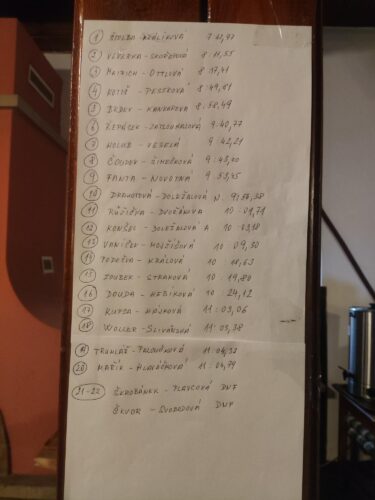 1 ŽIDLBA KRÁLÍKOVÁ 7:41,42
2 VEVERKA - SKOŘEPOVÁ 8:11,55
3 MATZICH - OTTLOVÁ 8:17,41
4 KOTIŠ - PESTROVÁ 8:49,61
5 DRBUV - KANKAROVÁ 8:58,49
6 ŘEPÁČEK - ZATLOUKALOVÁ 9:40,77
7 HOLUB - VESELÁ 9:42,21
8 ČOUDEK - ŠIMEČKOVÁ 9:45,10
9 FANTA - NOVOTNÁ 9:53,45
10 DRAHOŠOVÁ - DOLEŽALOVÁ N. 9:58,38
11 RŮŽIČKA - DVOŘÁKOVÁ 10:01,71
12 KONŠEL - DOLEŽALOVÁ A 10:03,18
13 VANÍČEK - MOLČÍKOVÁ 10 09,30
14 PODEŠVA - KRÁLOVÁ 10 11,63
15 ZOUBEK - STRAKOVÁ 10:19,80
16 DOUDA - HEBÍKOVÁ 10:24,12
17 KUTZA - HÁJKOVÁ 11:03,06
18 WOLLER - SLIVÁŘSKÁ 11:03,38
19 TRUHLÁŘ - PALOUČKOVÁ 11:04,32
20 MAŘÍK - HLAVÁČKOVÁ 11:04,79
21-22 ŠKROBÁNEK - PLAVCOVÁ DNF
ŠKVOR - SVOBODOVÁ DNF